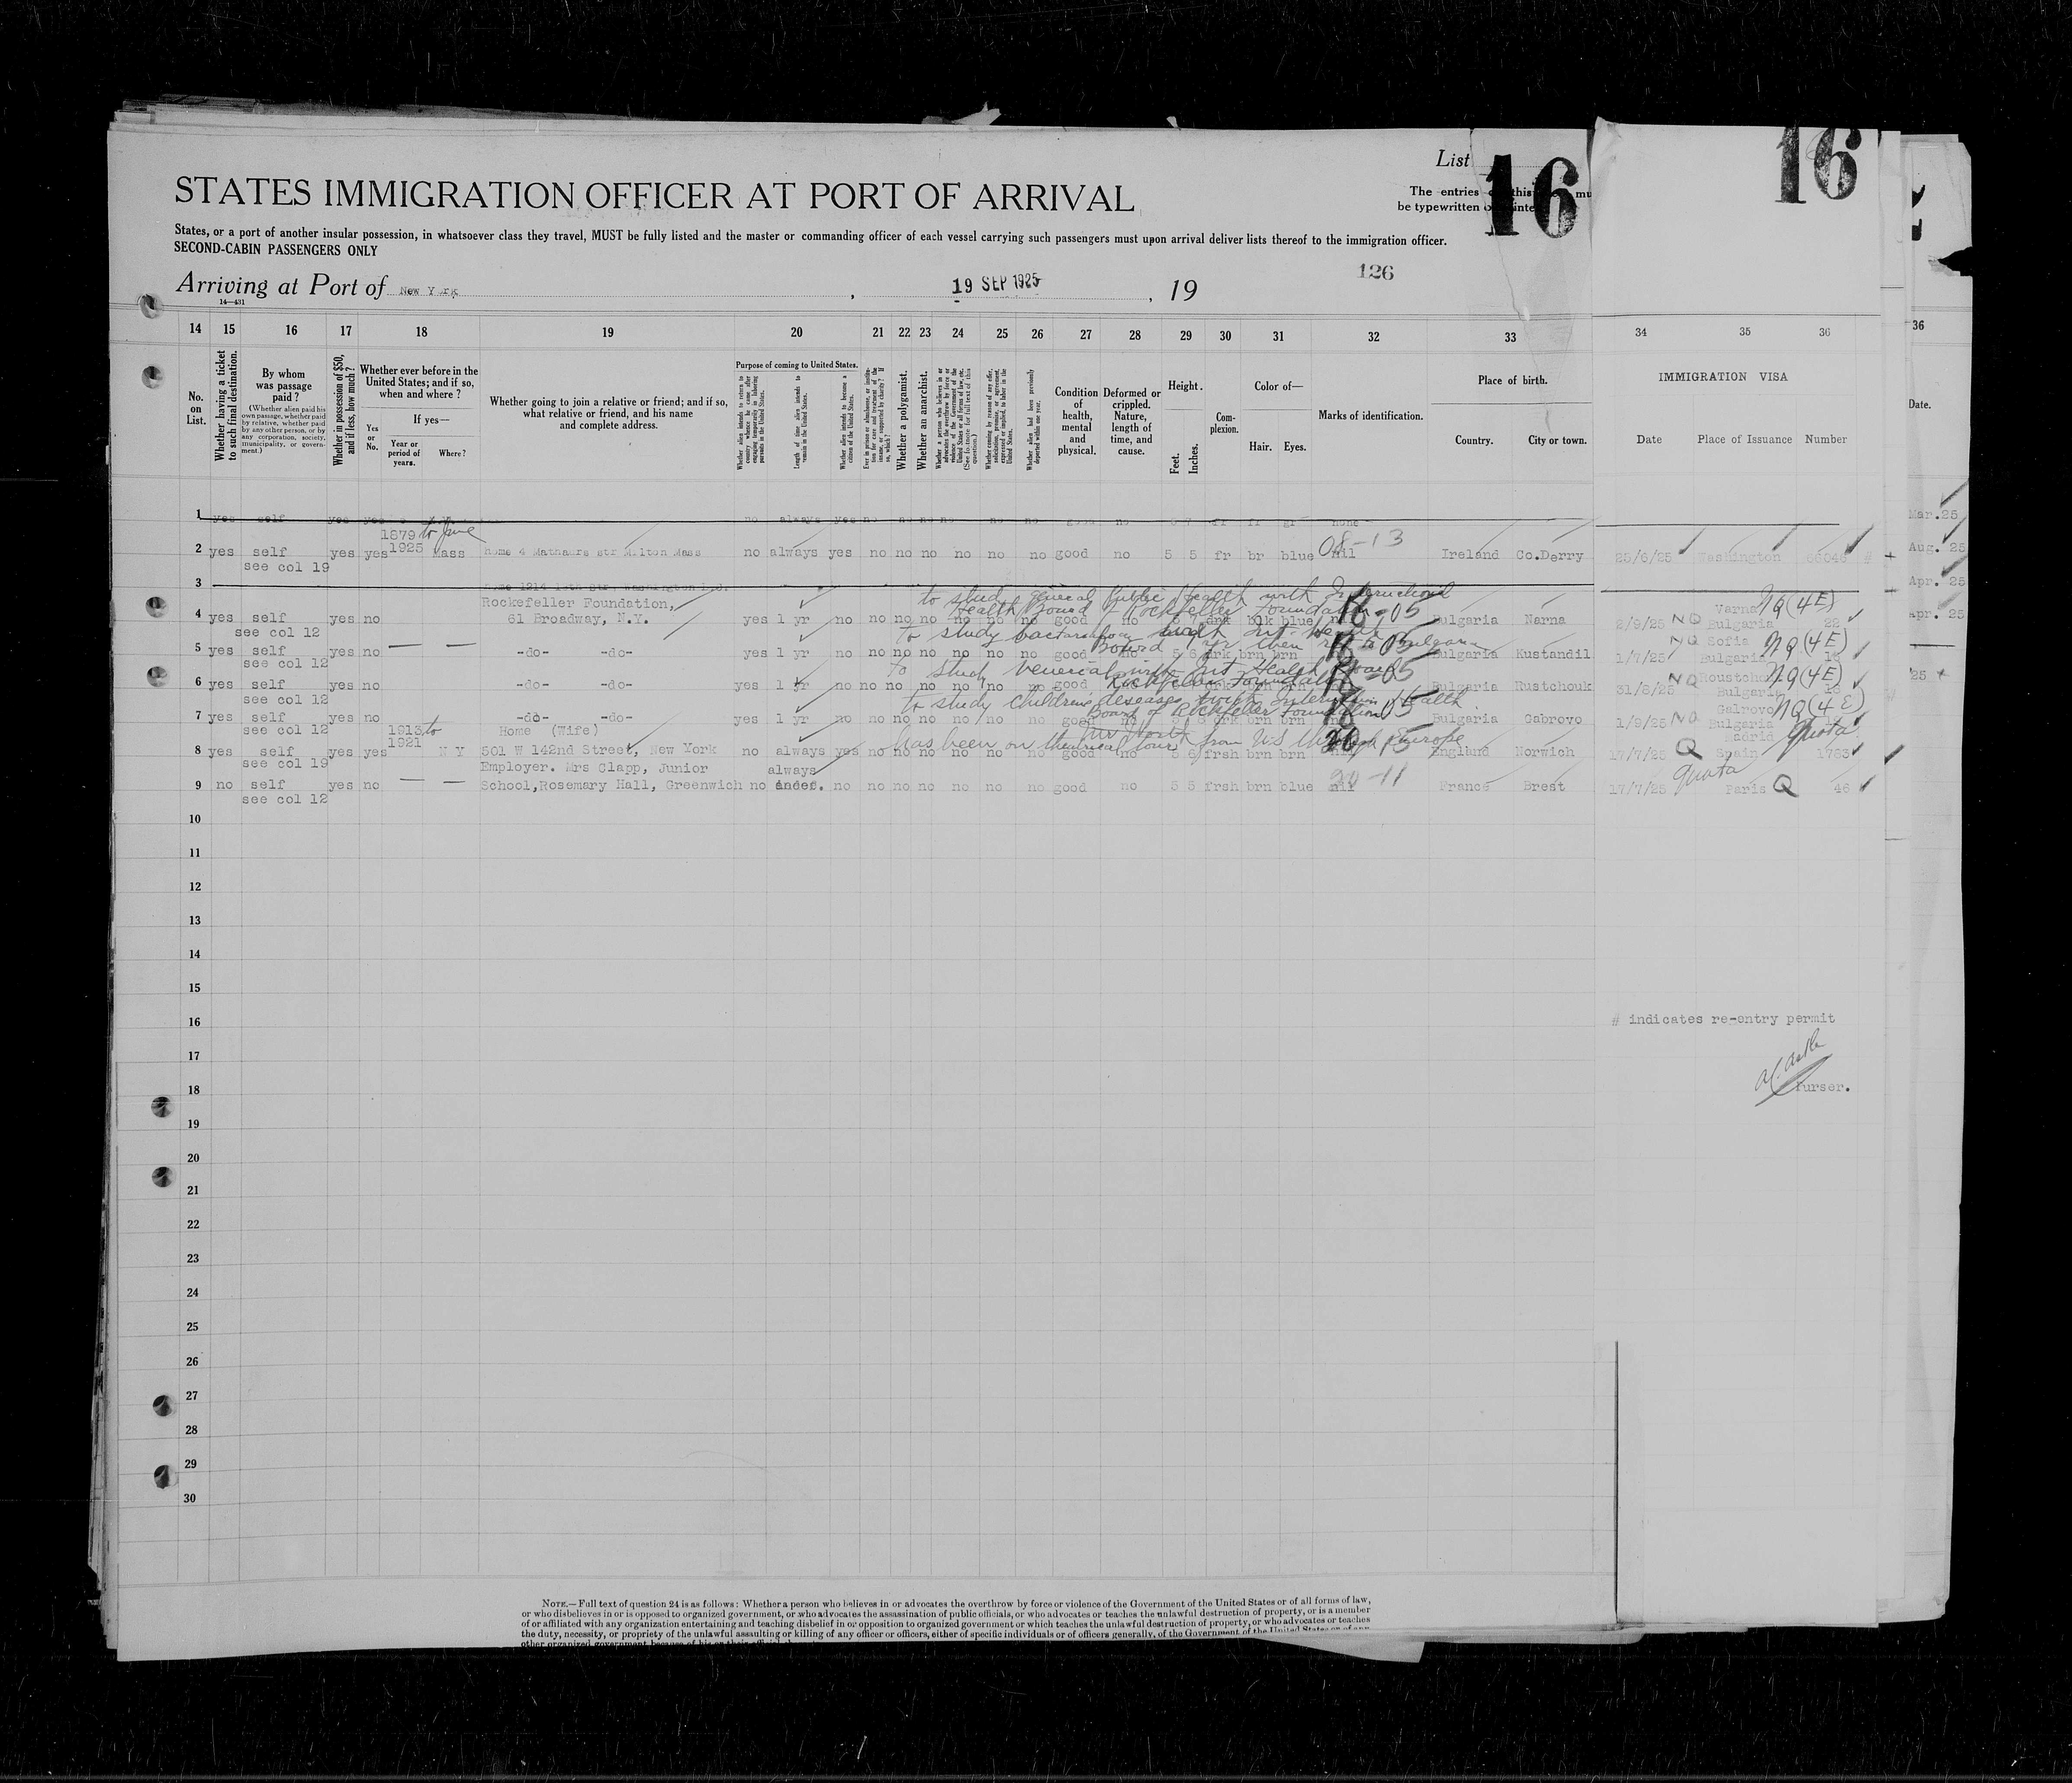 List 16
16
STATES IMMIGRATION OFFICER AT PORT OF ARRIVAL
The entries this mu
be typewritten
States, or a port of another insular possession, in whatsoever class they travel, MUST be fully listed and the master or commanding officer of each vessel carrying such passengers must upon arrival deliver lists thereof to the immigration officer.
SECOND-CABIN PASSENGERS ONLY
126
Arriving at Port of New York , 19 SEP 1925 , 19
14—431
14 15 16 17 18 19 20 21 22 23 24 25 26 27 28 29 30 31 32 33 34 35 36 36
No. on List.
Whether having a ticket to such final destination.
By whom was passage paid?
(Whether alien paid his own passage, whether paid by relative, whether paid by any other person, or by any corporation, society, municipality, or government.)
Whether in possession of $50, and if less, how much?
Whether ever before in the United States; and if so, when and where?
Yes or No.
If yes—
Year or period of years.
Where?
Whether going to join a relative or friend; and if so, what relative or friend, and his name and complete address.
Purpose of coming to United States.
Whether alien intends to return to country whence he came after engaging temporarily in laboring pursuits in the United States.
Length of time alien intends to remain in the United States.
Whether alien intends to become a citizen of the United States.
Whether a polygamist.
Whether an anarchist.
Whether alien had been previously deported within one year.
Condition of health, mental and physical.
Deformed or crippled. Nature, length of time, and cause.
Height.
Feet. Inches.
Complexion.
Color of—
Hair. Eyes.
Marks of identification.
Place of birth.
Country. City or town.
IMMIGRATION VISA
Date Place of Issuance Number
Date.
1 yes self yes yes no always yes no no no no no no good no fr fr gr none
Mar.25
1879 to June
2 yes self yes yes 1925 Mass Home 4 Mathaurs str Milton Mass no always yes no no no no no no good no 5 5 fr br blue nil 08-13 Ireland Co.Derry 25/6/25 Washington #
see col 19
Aug. 25
3 Home 1314 Washington
Apr. 25
to study general Public Health with International
Rockefeller Foundation, Health Board of Rockfeller Foundation
4 yes self yes no 61 Broadway, N.Y. yes 1 yr no no no no no no no good no 5 7 drk blk blue 16-05 Bulgaria Narna 2/9/25 NQ Varna Bulgaria NQ(4E) 22
see col 12
apr. 25
5 yes self yes no — — -do- -do- yes 1 yr no no no no no no no good no 5 6 drk brn brn 16-05 Bulgaria Kustandil 1/7/25 NQ Sofia Bulgaria NQ(4E)
see col 12
to study venereal with Int Health Board
Rockfeller Foundation
6 yes self yes no -do- -do- yes 1 yr no no no no no no no good 16-05 Bulgaria Rustchouk 31/8/25 NQ Bulgaria NQ(4E)
see col 12
25
to study Childrens diseases with Health
Board of Rockfeller Foundation
7 yes self yes no -do- -do- yes 1 yr no no no no no no no good no drk brn brn Bulgaria Gabrovo 1/9/25 NQ Bulgaria NQ(4E)
see col 12
1913 to Home (Wife)
1921
has been on theatrical tour from U.S through Europe
8 yes self yes yes N Y 501 W 142nd Street, New York no always yes no no no no no no good no 5 6 frsh brn brn England Norwich 17/7/25 Q Madrid Spain Quota 1763
see col 19
Employer. Mrs Clapp, Junior always
9 no self yes no — — School,Rosemary Hall, Greenwich no no no no no no no no good no 5 5 frsh brn blue nil 20-11 France Brest 17/7/25 quota Paris Q 46
see col 12
10
11
12
13
14
15
16
# indicates re-entry permit
17
18
Purser.
19
20
21
22
23
24
25
26
27
28
29
30
NOTE.—Full text of question 24 is as follows: Whether a person who believes in or advocates the overthrow by force or violence of the Government of the United States or of all forms of law,
or who disbelieves in or is opposed to organized government, or who advocates the assassination of public officials, or who advocates or teaches the unlawful destruction of property, or is a member
of or affiliated with any organization entertaining and teaching disbelief in or opposition to organized government or which teaches the unlawful destruction of property, or who advocates or teaches
the duty, necessity, or propriety of the unlawful assaulting or killing of any officer or officers, either of specific individuals or of officers generally, of the Government of the United States or of any